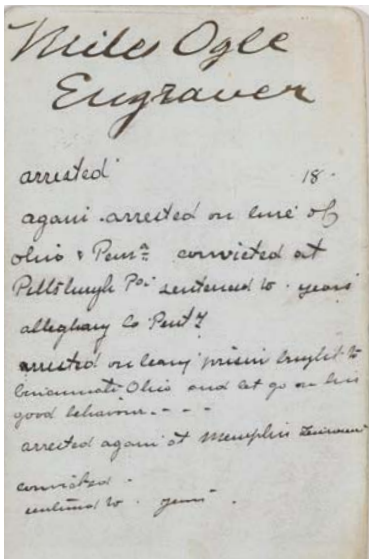 Miles Ogle
Engraver
arrested 18-
again arrested on line of
Ohio & Penna convicted at
Pittsburgh Pa sentenced to years
alleghany Co Penty
arrested on leaving prison brought to
Cincinnati Ohio and let go on his
good behaviour - - - -
arrested again at Memphis
convicted -
sentenced to . years .